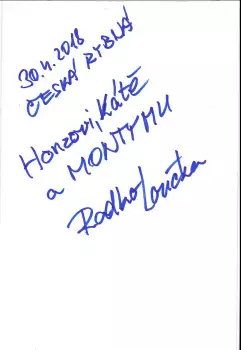 30.4.2018
ČESKÁ RYBNÁ
Honzovi, Kátě
a MONTYMU
Radko Loučka